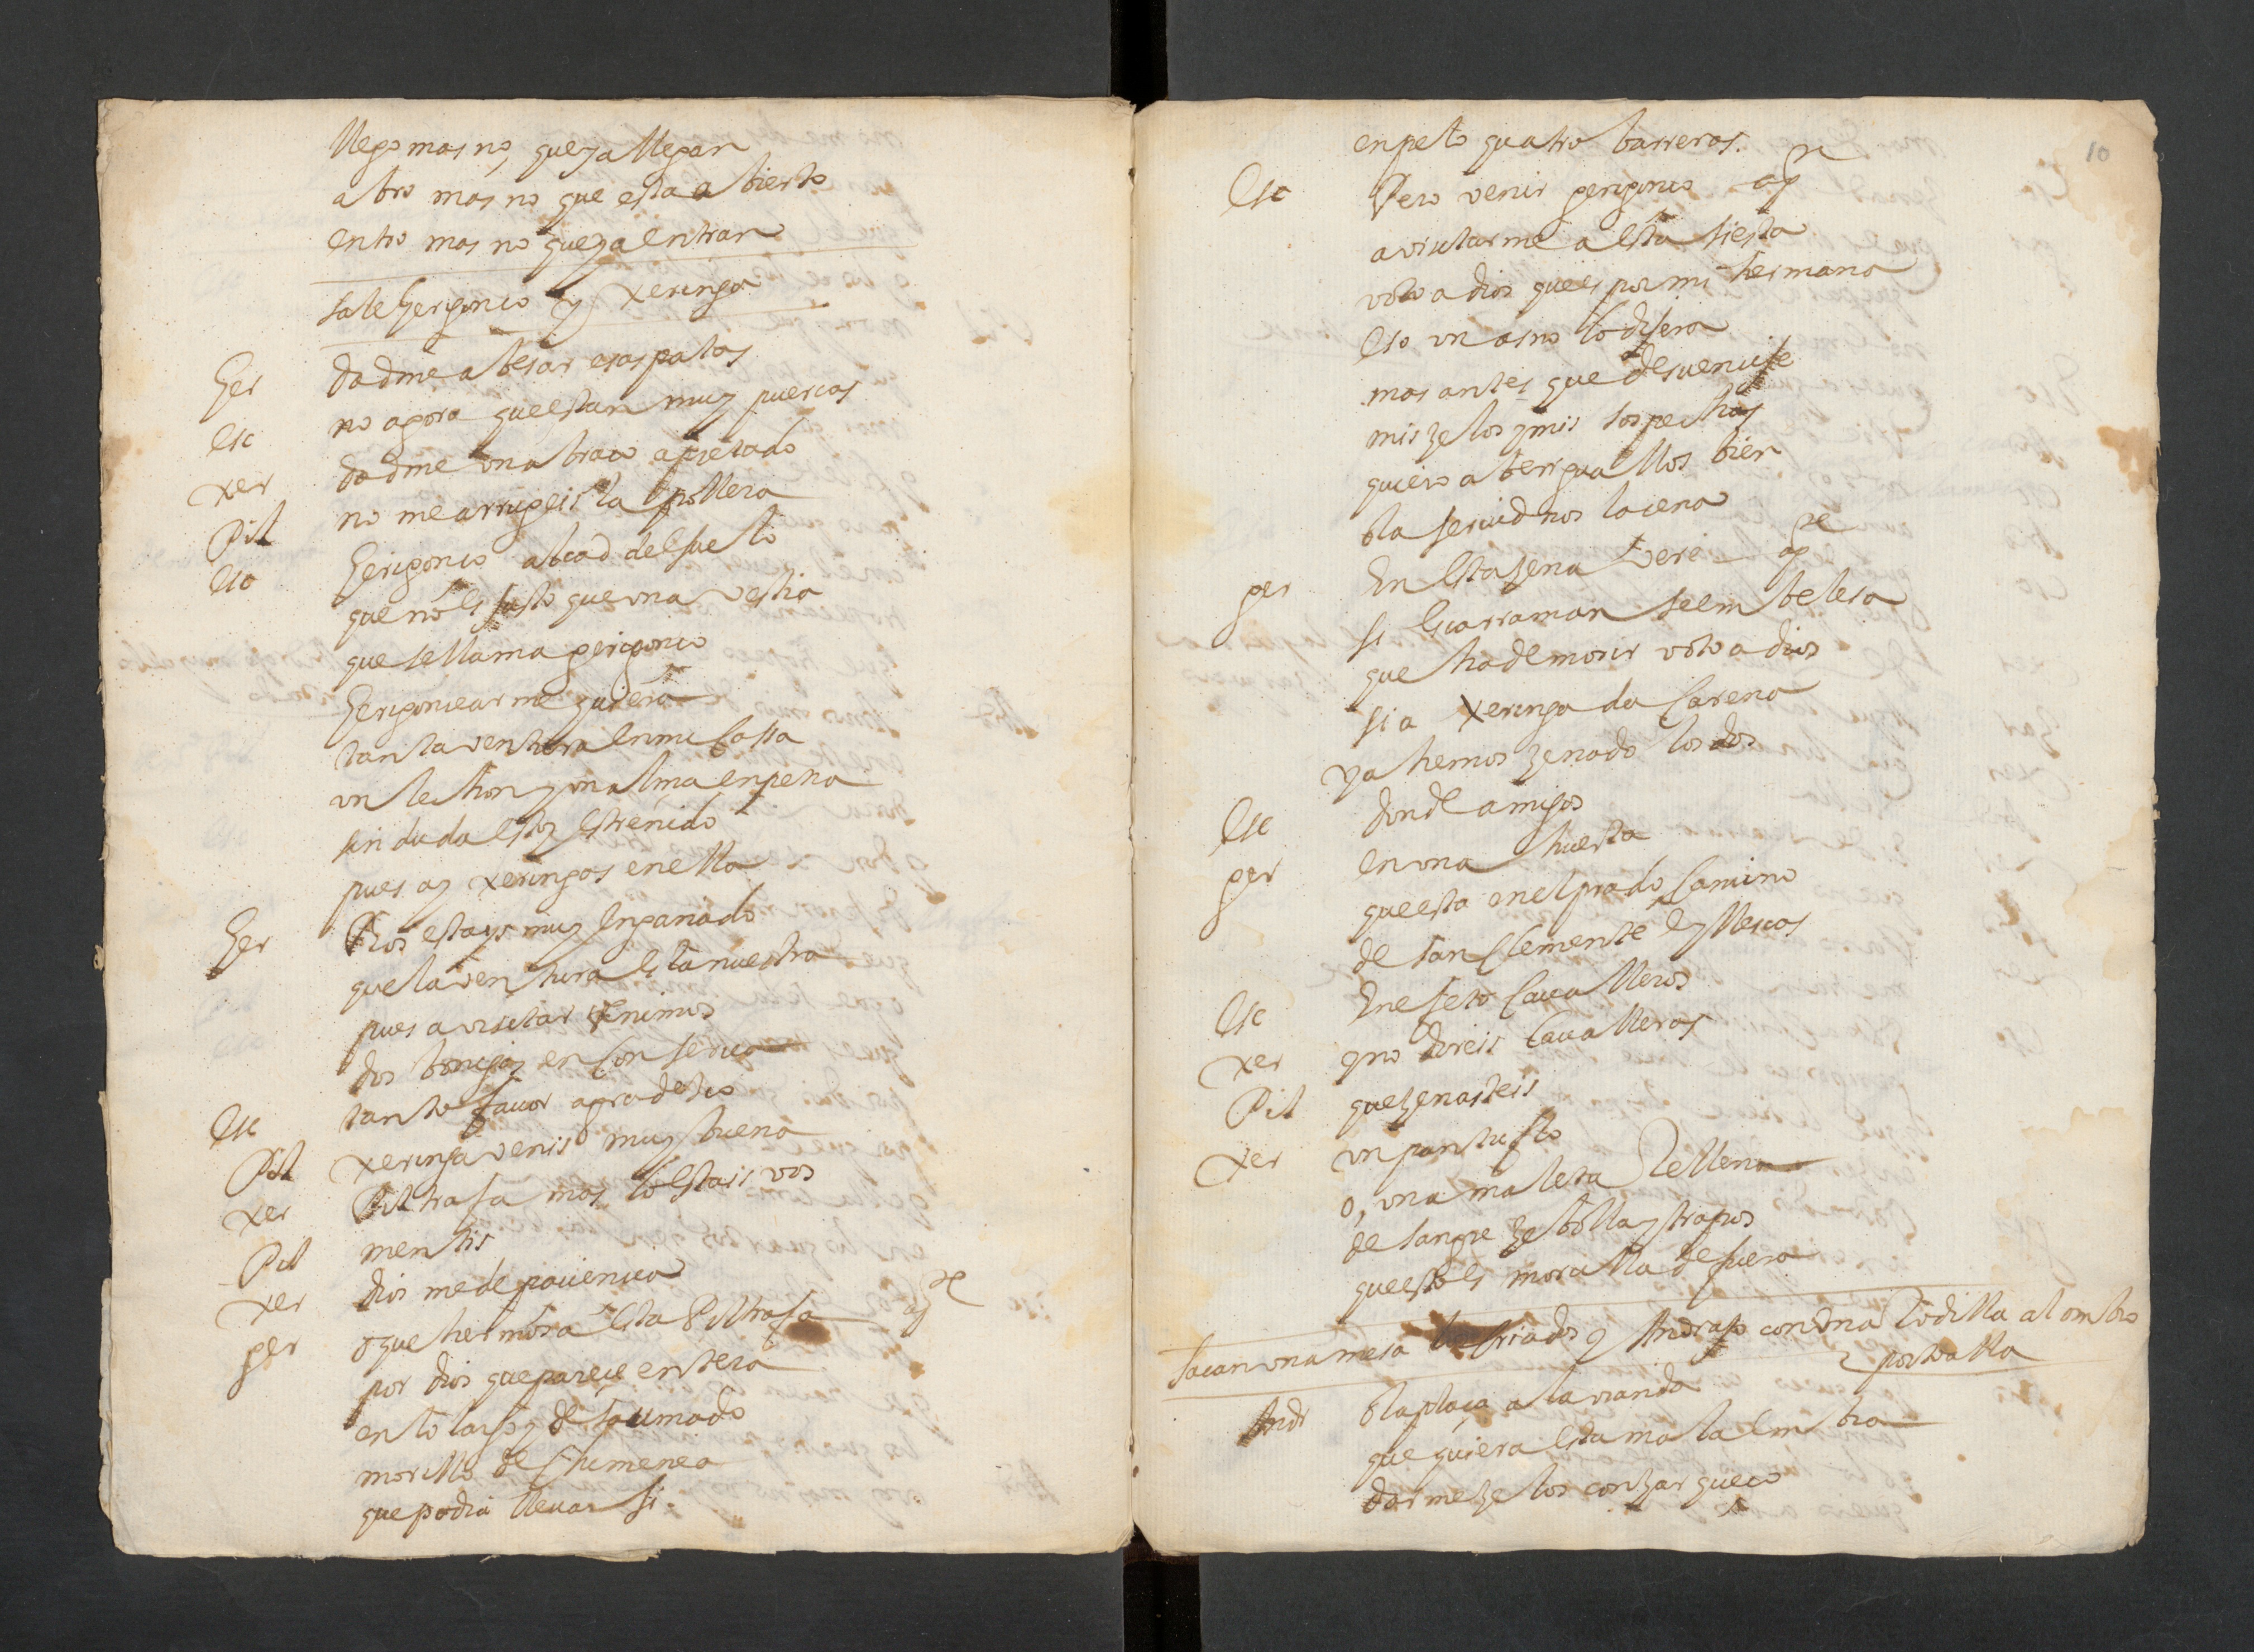 llego mas no, que ya llegan
abro mas no que esta abierto
entro mas no que ya entran
sale Gerigonço y xeringa
Ger dadme a besar esas patas
esc no agora que estan muy puercas
xer dadme un abraço apretado
Pil no me arrugeis la pollera
esc Gerigonço alçad del suelo
que no es justo que una vestia
que se llama gerigonço
Gerigonçearme quiera
tanta ventura en mi cassa
un lechon y un alma en pena
sin duda estoy estreñido
pues ay xeringas en ella
Ger Vos estays muy enganado
que la ventura es la nuestra
pues a visitar venimos
dos en conserva
esc tanto favor agradezco
Pil xeringa venis muy buena
xer Piltrafa mas lo estais vos
Pil mentis
xer dios me de paciencia
ger o que hermosa esta Piltrafa ap
por dios que parece entera
en lo largo y desaumado
morillo de chimenea
que podra llevar si
10
en peto quatro barreras.
esc Pero venir gerigonço ap
a visitarme a esta siesta
voto a dios que es por mi hermana
eso un asno lo dijera
mas antes que desvençije
mis zelos y mis sospechas
quiero aberiguallos bien
ola servidnos la cena
ger En esta zena vere ap
si escarraman se embelesa
que ha de morir voto a dios
si a xeringa da carena
ya hemos zenado los dos
esc donde amigos
ger en una huerta
que esta en el prado camino
de san clemente e yllescas
esc En efeto cavalleros
xer y no direis cavalleras
Pil que zenasteis
xer un pantuflo
o, una maleta rellena
de sangre zebolla y trapos
que esto es morcilla de fuera
sacan una mesa los criados y Andrajo con una rodilla al ombro
por toalla
Andr ola plaça a la vianda
que quiera esta mala embra
darme zelos con zargueco